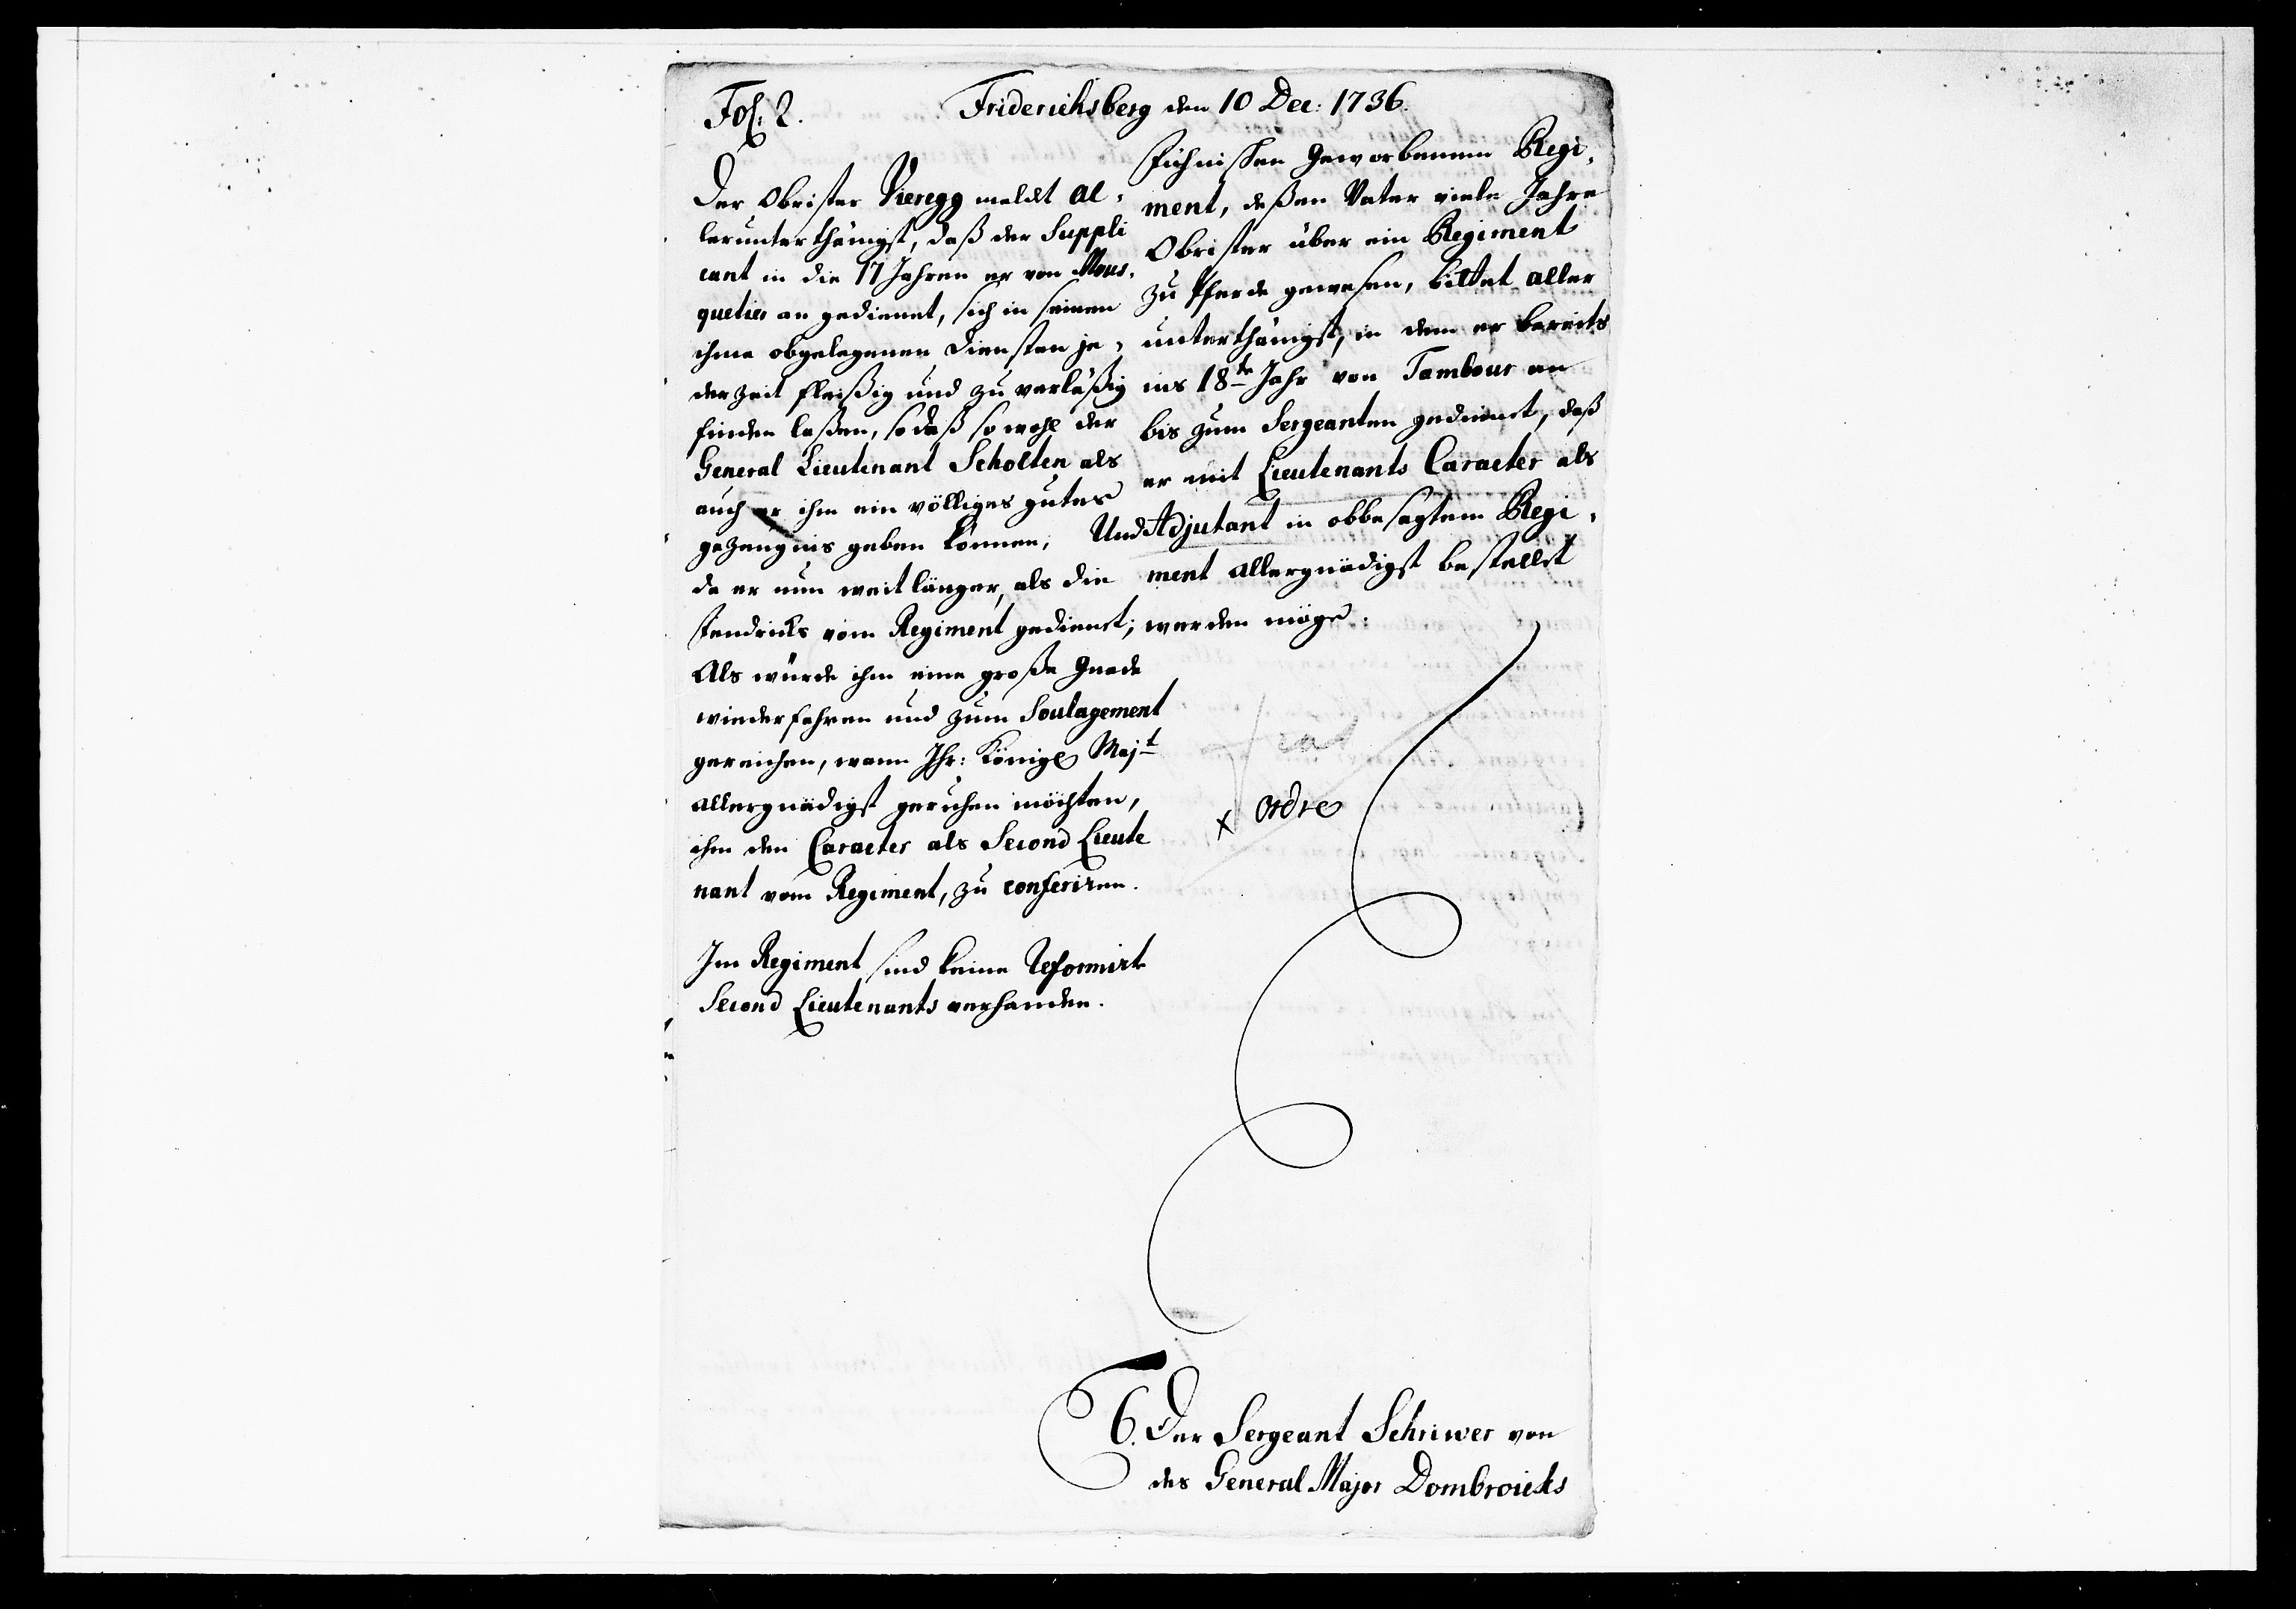 Fol: 2.
Friderichsberg den 10 Dec: 1736.
Der Obrister Vieregg meldt al-
lerunterthänigst, daß der Suppli
cant in die 17 Jahren er von Mous-
quetier an gedienet, sich in seinen
ihme obgelegenen Diensten je-
derzeit fleißig und zu verläßig
finden laßen, so daß so wohl der
General Lieutenant Scholten als
auch er ihm ein völliges gutes
gezeugnis geben können, Und
da er nun weit länger, als die
Fendricks vom Regiment gedienet;
Als würde ihm eine große Gnade
wiederfahren und zum Soulagement
gereichen, wann Ihr: Königl Majt
allergnädigst geruhen möchten,
ihm den Caracter als Second Lieute
nant vom Regiment, zu conferiren.
Im Regiment sind keine Reformirte
Second Lieutenants verhanden.
Fühnisken Geworbenem Regi-
ment, deßen Vater viele Jahre
Obrister über ein Regiment
zu Pferde gewesen, bittet aller
unterthänigst, in dem er bereits
ins 18te Jahr von Tambour an
bis zum Sergeanten gedienet, daß
er mit Lieutenants Caracter als
Adjutant in obbesagtem Regi-
ment allergnädigst bestellet
werden möge.
x Ordre
6. Der Sergeant Schriwer von
des General Major Dombroicks